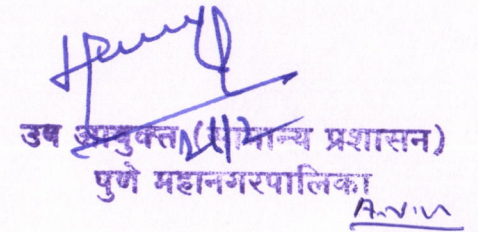 उप आयुक्त (सामान्य प्रशासन)
पुणे महानगरपालिका